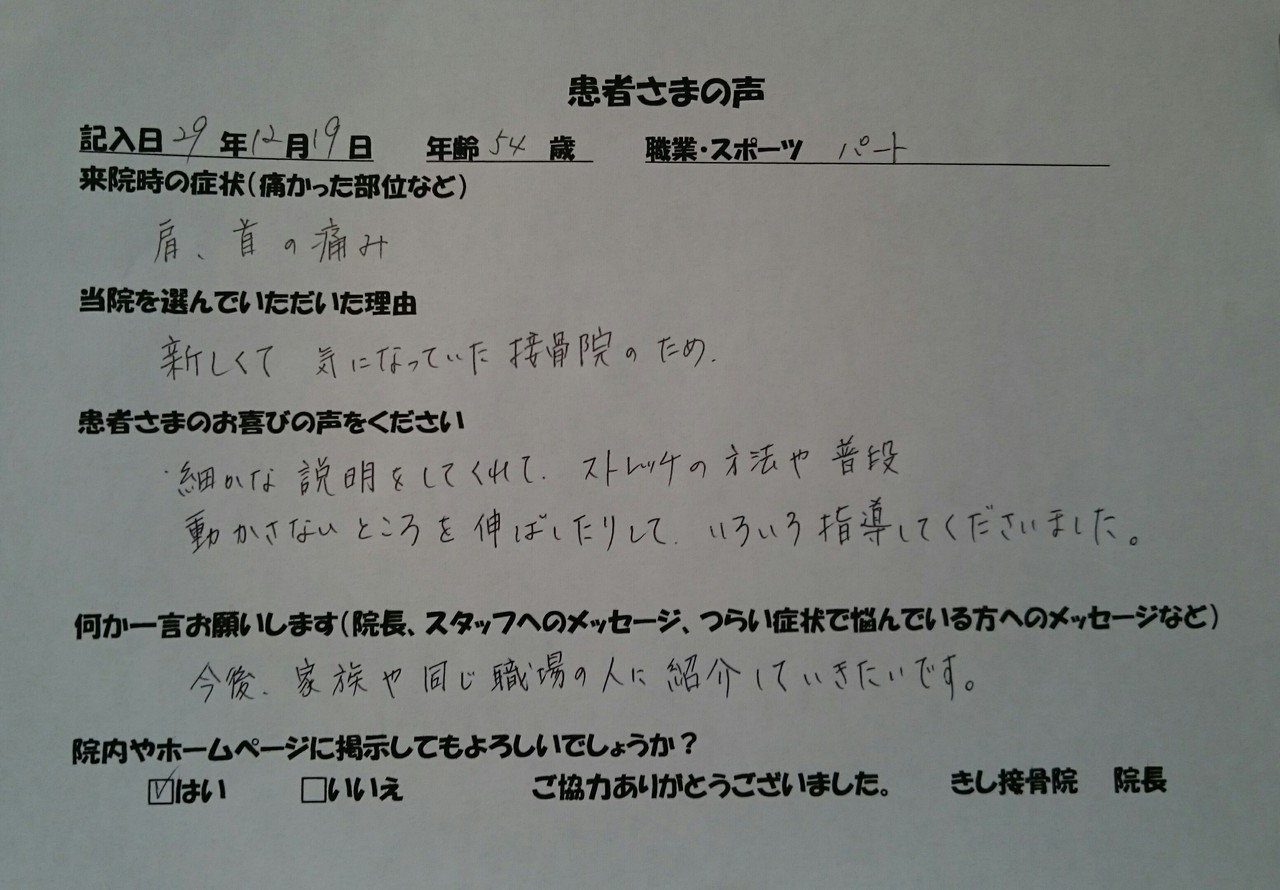 患者さまの声
記入日 29 年 12 月 19 日 年齢 54 歳 職業・スポーツ パート
来院時の症状(痛かった部位など)
肩、首の痛み
当院を選んでいただいた理由
新しくて 気になっていた接骨院のため.
患者さまのお喜びの声をください
・細かな説明をしてくれて、ストレッチの方法や普段
動かさないところを伸ばしたりして、いろいろ指導してくださいました。
何か一言お願いします(院長、スタッフへのメッセージ、つらい症状で悩んでいる方へのメッセージなど)
今後、家族や同じ職場の人に紹介していきたいです。
院内やホームページに掲示してもよろしいでしょうか?
☑はい □いいえ ご協力ありがとうございました。 きし接骨院 院長